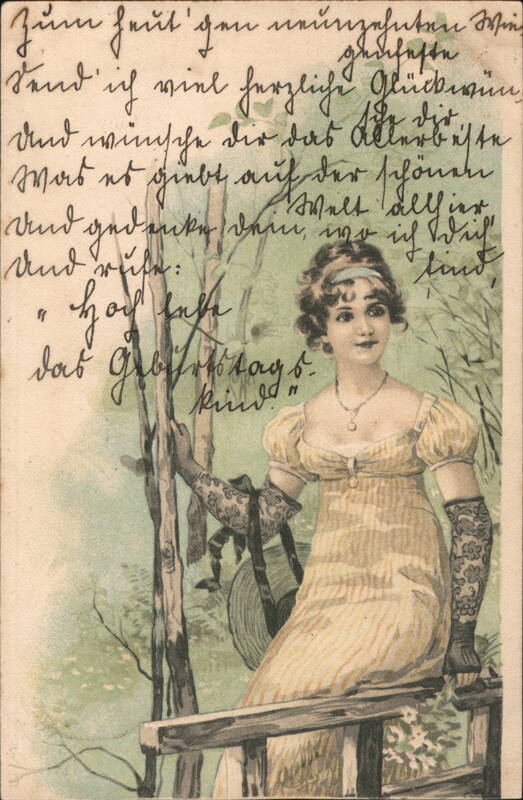 Zum heut'gen neunzehnten Wie-
genfeste
Send' ich viel herzliche Glückwün-
sche dir,
Und wünsche dir das Allerbeste
Was es giebt auf der schönen
Welt allhier,
Und gedenke dein, wo ich dich
find,
Und rufe:
"Hoch lebe
das Geburtstags-
kind."